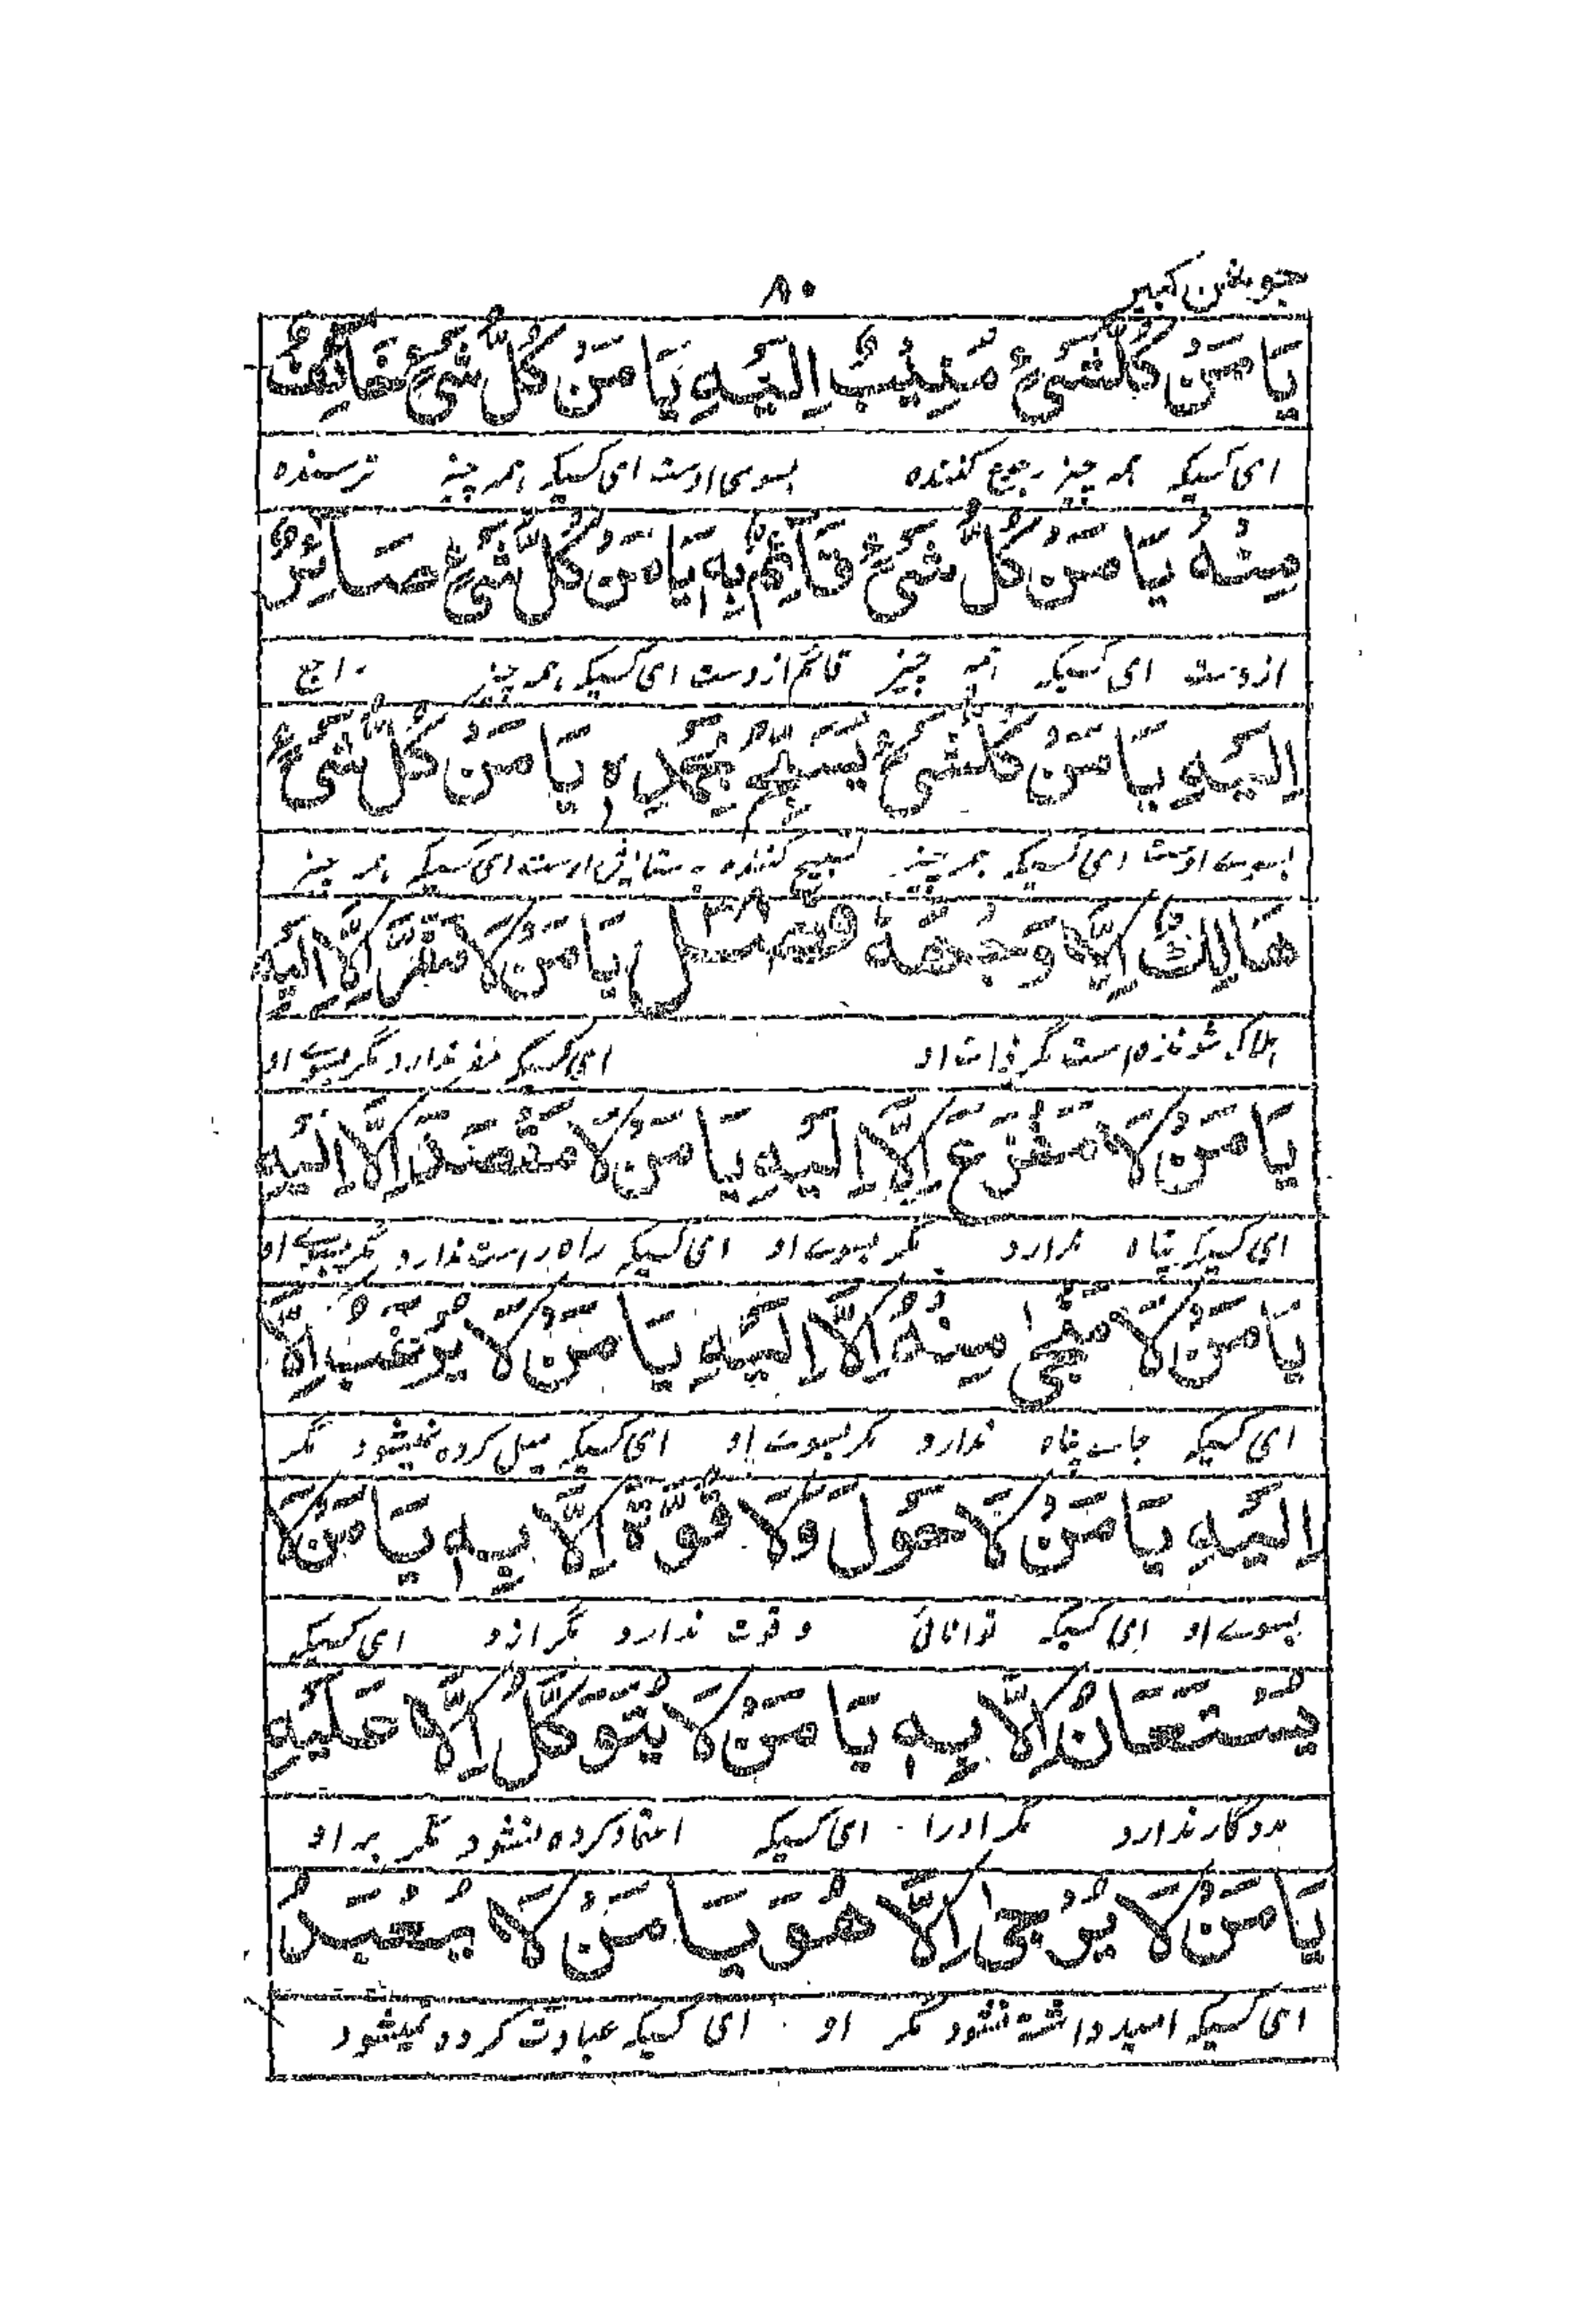 جوشن کبیر
۸۰
يَا مَنْ كُلُّ شَيْءٍ مُنِيبٌ اِلَيْهِ يَا مَنْ كُلُّ شَيْءٍ خَائِفٌ
ای کسیکه همه چیز رجوع کننده بسوی اوست ای کسیکه همه چیز ترسنده
مِنْهُ يَا مَنْ كُلُّ شَيْءٍ قَآئِمٌ بِهٖ يَا مَنْ كُلُّ شَيْءٍ صَآئِرٌ
ازوست ای کسیکه همه چیز قائم ازوست ای کسیکه همه چیز راجع
اِلَيْهِ يَا مَنْ كُلُّ شَيْءٍ يُسَبِّحُ بِحَمْدِهٖ يَا مَنْ كُلُّ شَيْءٍ
بسوے اوست ای کسیکه همه چیز تسبیح کننده بستایش اوست ای کسیکه همه چیز
هَالِكٌ اِلَّا وَجْهَهٗ فصل يَا مَنْ لَا مَفَرَّ اِلَّا اِلَيْهِ
هلاک شونده است مگر ذات او ای کسیکه مفر ندارد مگر بسوے او
يَا مَنْ لَا مَفْزَعَ اِلَّا اِلَيْهِ يَا مَنْ لَا مَقْصَدَ اِلَّا اِلَيْهِ
ای کسیکه پناه ندارد مگر بسوے او ای کسیکه راه راست ندارد مگر بسوے او
يَا مَنْ لَا مَنْجٰى مِنْهُ اِلَّا اِلَيْهِ يَا مَنْ لَا يُرْغَبُ اِلَّا
ای کسیکه جاے پناه ندارد مگر بسوے او ای کسیکه میل کرده نمیشود مگر
اِلَيْهِ يَا مَنْ لَا حَوْلَ وَلَا قُوَّةَ اِلَّا بِهٖ يَا مَنْ لَا
بسوے او ای کسیکه توانائی و قوت ندارد مگر ازو ای کسیکه
يُسْتَعَانُ اِلَّا بِهٖ يَا مَنْ لَا يُتَوَكَّلُ اِلَّا عَلَيْهِ
مددگار ندارد مگر اورا ای کسیکه اعتماد کرده نشود مگر به او
يَا مَنْ لَا يُرْجٰى اِلَّا هُوَ يَا مَنْ لَا يُعْبَدُ
ای کسیکه امید داشته نشود مگر او ای کسیکه عبادت کرده نمیشود